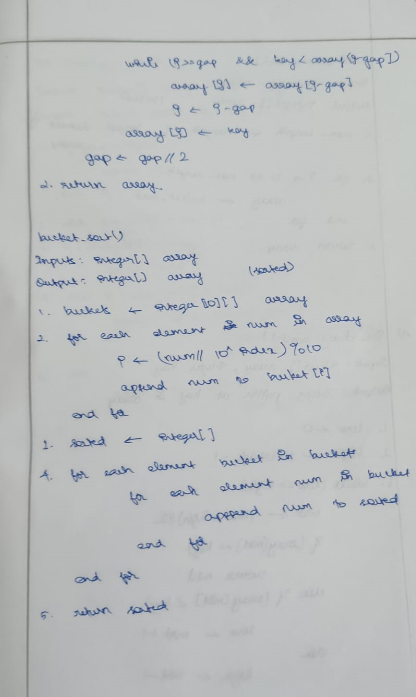 while (j>=gap && key < array[j-gap])
array[j] ← array[j-gap]
j ← j-gap
array[j] ← key
gap ← gap//2
2. return array.
bucket_sort()
Inputs: integer[] array
Output: integer[] array (sorted)
1. buckets ← integer[10][] array
2. for each element num in array
i ← (num// 10^index)%10
append num to bucket[i]
end for
3. sorted ← integer[]
4. for each element bucket in buckets
for each element num in bucket
append num to sorted
end for
end for
5. return sorted